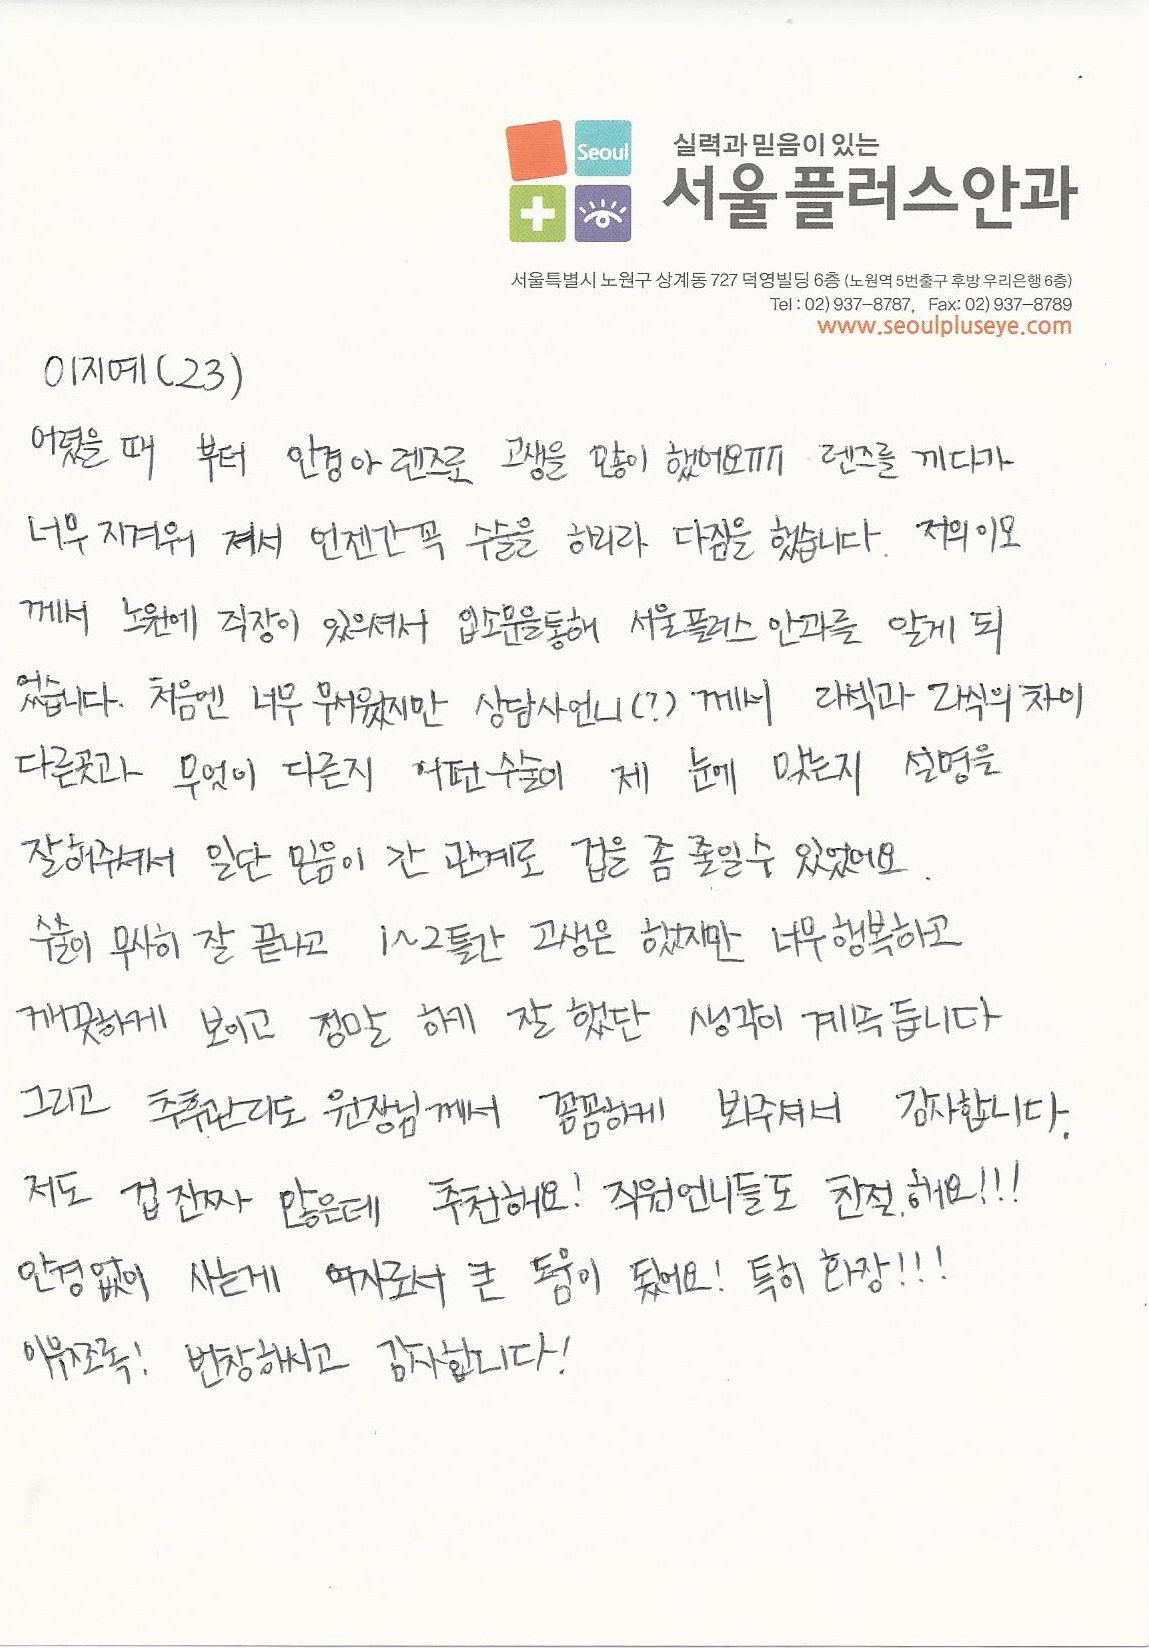 Seoul
실력과 믿음이 있는
서울플러스안과
서울특별시 노원구 상계동 727 덕영빌딩 6층 (노원역 5번출구 후방 우리은행 6층)
Tel : 02) 937-8787, Fax: 02) 937-8789
www.seoulpluseye.com
이지예(23)
어렸을 때 부터 안경아 렌즈로 고생을 많이 했어요ㅠㅠ 렌즈를 끼다가
너무 지겨워 져서 언젠간 꼭 수술을 하리라 다짐을 했습니다. 저의 이모
께서 노원에 직장이 있으셔서 입소문을통해 서울플러스 안과를 알게 되
었습니다. 처음엔 너무 무서웠지만 상담사언니(?) 께서 라섹과 라식의 차이
다른곳과 무엇이 다른지 어떤수술이 제 눈에 맞는지 설명을
잘해주셔서 일단 믿음이 간 관계로 겁을 좀 줄일수 있었어요.
수술이 무사히 잘 끝나고 1~2틀간 고생은 했지만 너무행복하고
깨끗하게 보이고 정말 하기 잘 했단 생각이 계속 듭니다
그리고 추후관리도 원장님께서 꼼꼼하게 봐주셔서 감사합니다.
저도 겁 진짜 많은데 추천해요! 직원언니들도 친절해요!!!
안경없이 사는게 여자로서 큰 도움이 됐어요! 특히 화장!!!
이유쪼록! 번창하시고 감사합니다!